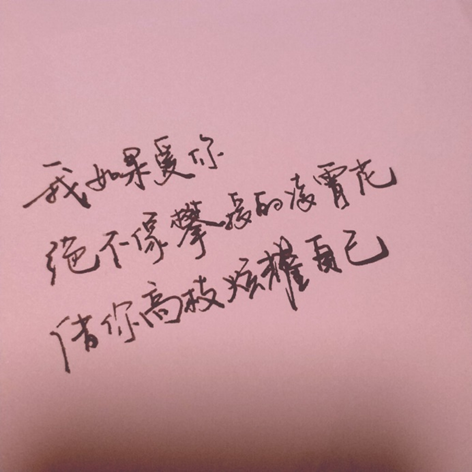 我如果爱你
绝不像攀援的凌霄花
借你高枝炫耀自己